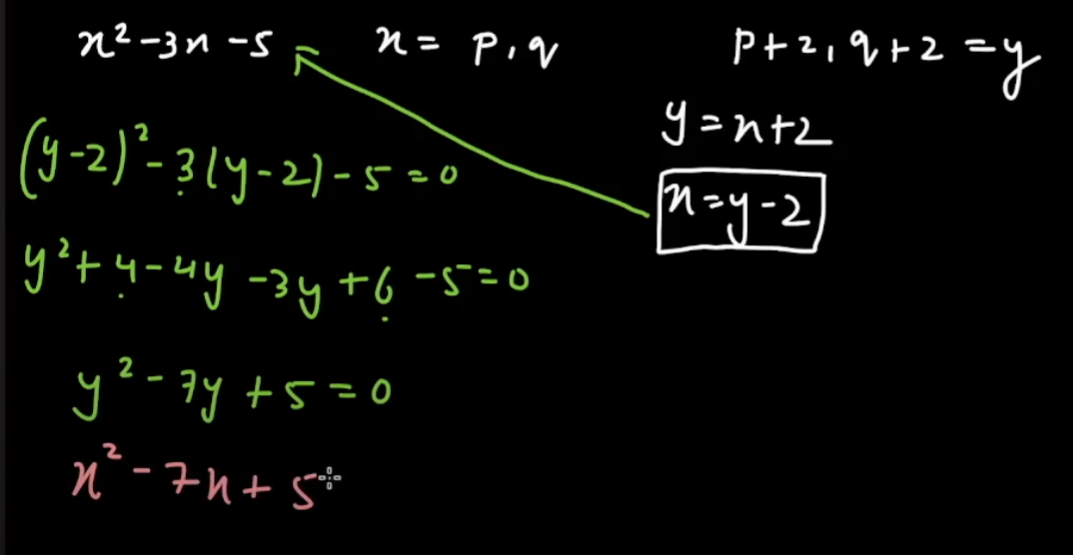 x² - 3x - 5    x = p, q    p + 2, q + 2 = y
y = x + 2
(y - 2)² - 3(y - 2) - 5 = 0
x = y - 2
y² + 4 - 4y - 3y + 6 - 5 = 0
y² - 7y + 5 = 0
x² - 7x + 5